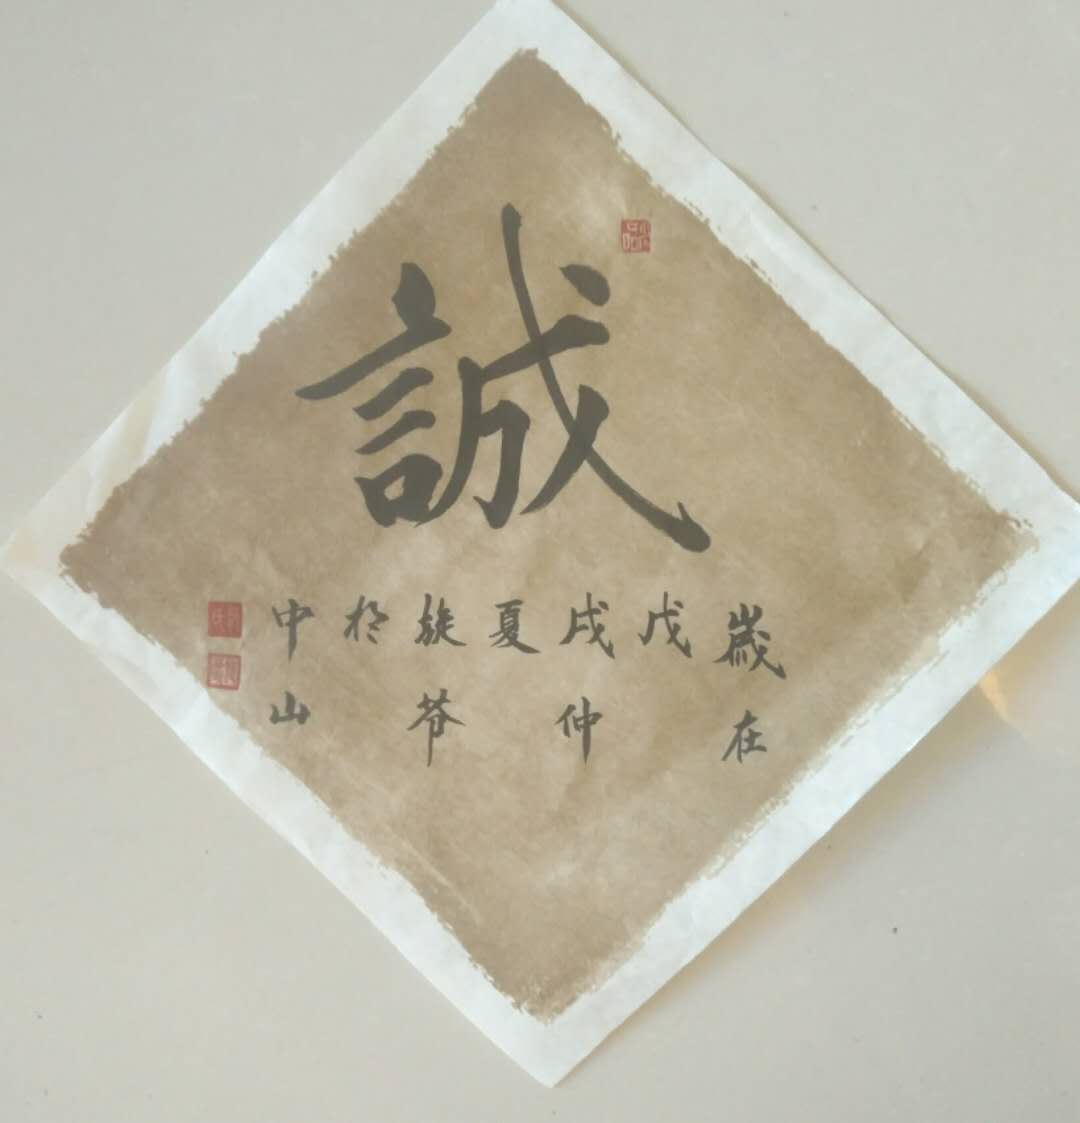 誠
歲在
戊
戌仲
夏
旋苓
於
中山